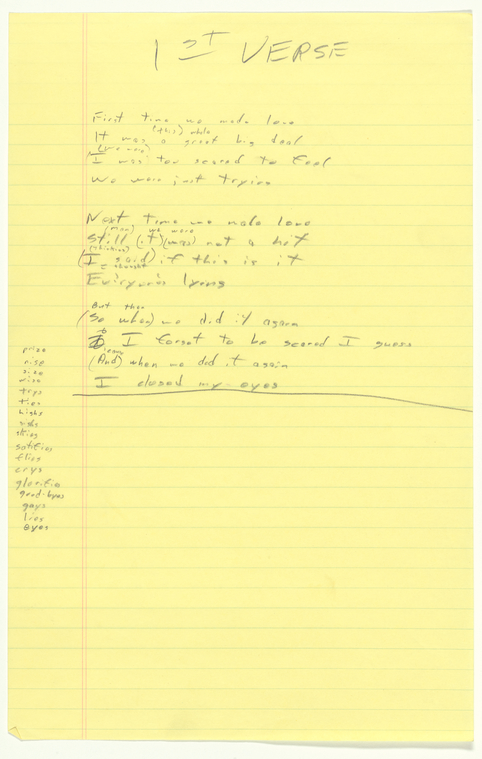 1ST VERSE
First time we made love
(this) while
It was a great big deal
(We were)
I was too scared to feel
We were just trying
Next time we made love
(man) we were
Still (it) (was) not a hit
(thinking)
(I said) if this is it
I thought
Everyone's lying
But then
(So when) we did it again
I forgot to be scared I guess
(And) when we did it again
I closed my eyes
prize
rise
size
wise
trys
ties
highs
sighs
skies
satifies
flies
crys
glorifies
good-byes
guys
lies
eyes